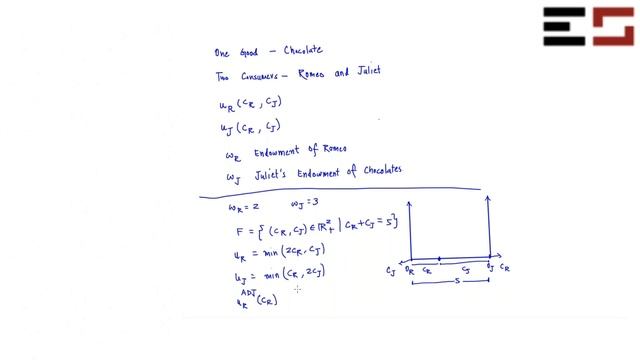 ES
One Good – Chocolate
Two Consumers – Romeo and Juliet
u_R (C_R, C_J)
u_J (C_R, C_J)
ω_R Endowment of Romeo
ω_J Juliet's Endowment of Chocolates
ω_R = 2 ω_J = 3
F = { (C_R, C_J) ∈ ℝ²₊ | C_R + C_J = 5 }
u_R = min (2C_R, C_J)
u_J = min (C_R, 2C_J)
u_R^ADJ (C_R)
C_J O_R C_R C_J O_J C_R
5